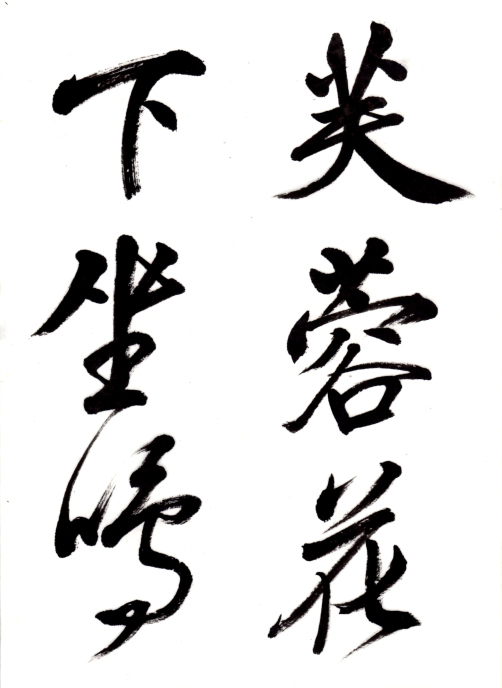 芙蓉花
下坐鳴